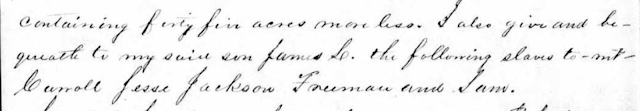 containing forty five acres more less. I also give and be-
queath to my said son James L. the following slaves to-wit-
Carroll Jesse Jackson Freeman and Sam.